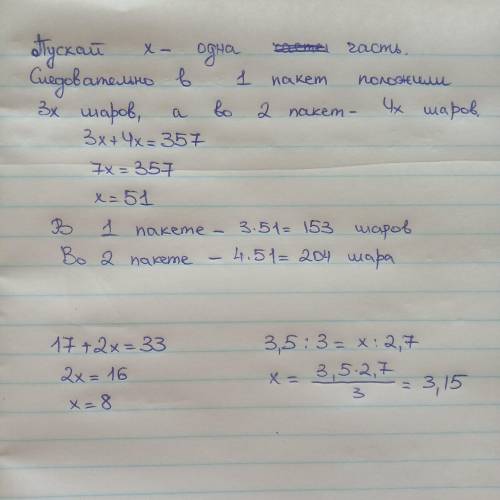 Пускай x - одна часть.
Следовательно в 1 пакет положили
3x шаров, а во 2 пакет - 4x шаров.
3x+4x=357
7x=357
x=51
В 1 пакете - 3·51= 153 шаров
Во 2 пакете - 4·51= 204 шара
17+2x=33
2x=16
x=8
3,5 : 3 = x : 2,7
x = 3,5·2,7 / 3 = 3,15